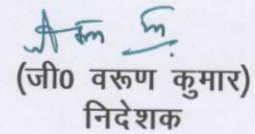 (जी0 वरूण कुमार)
निदेशक